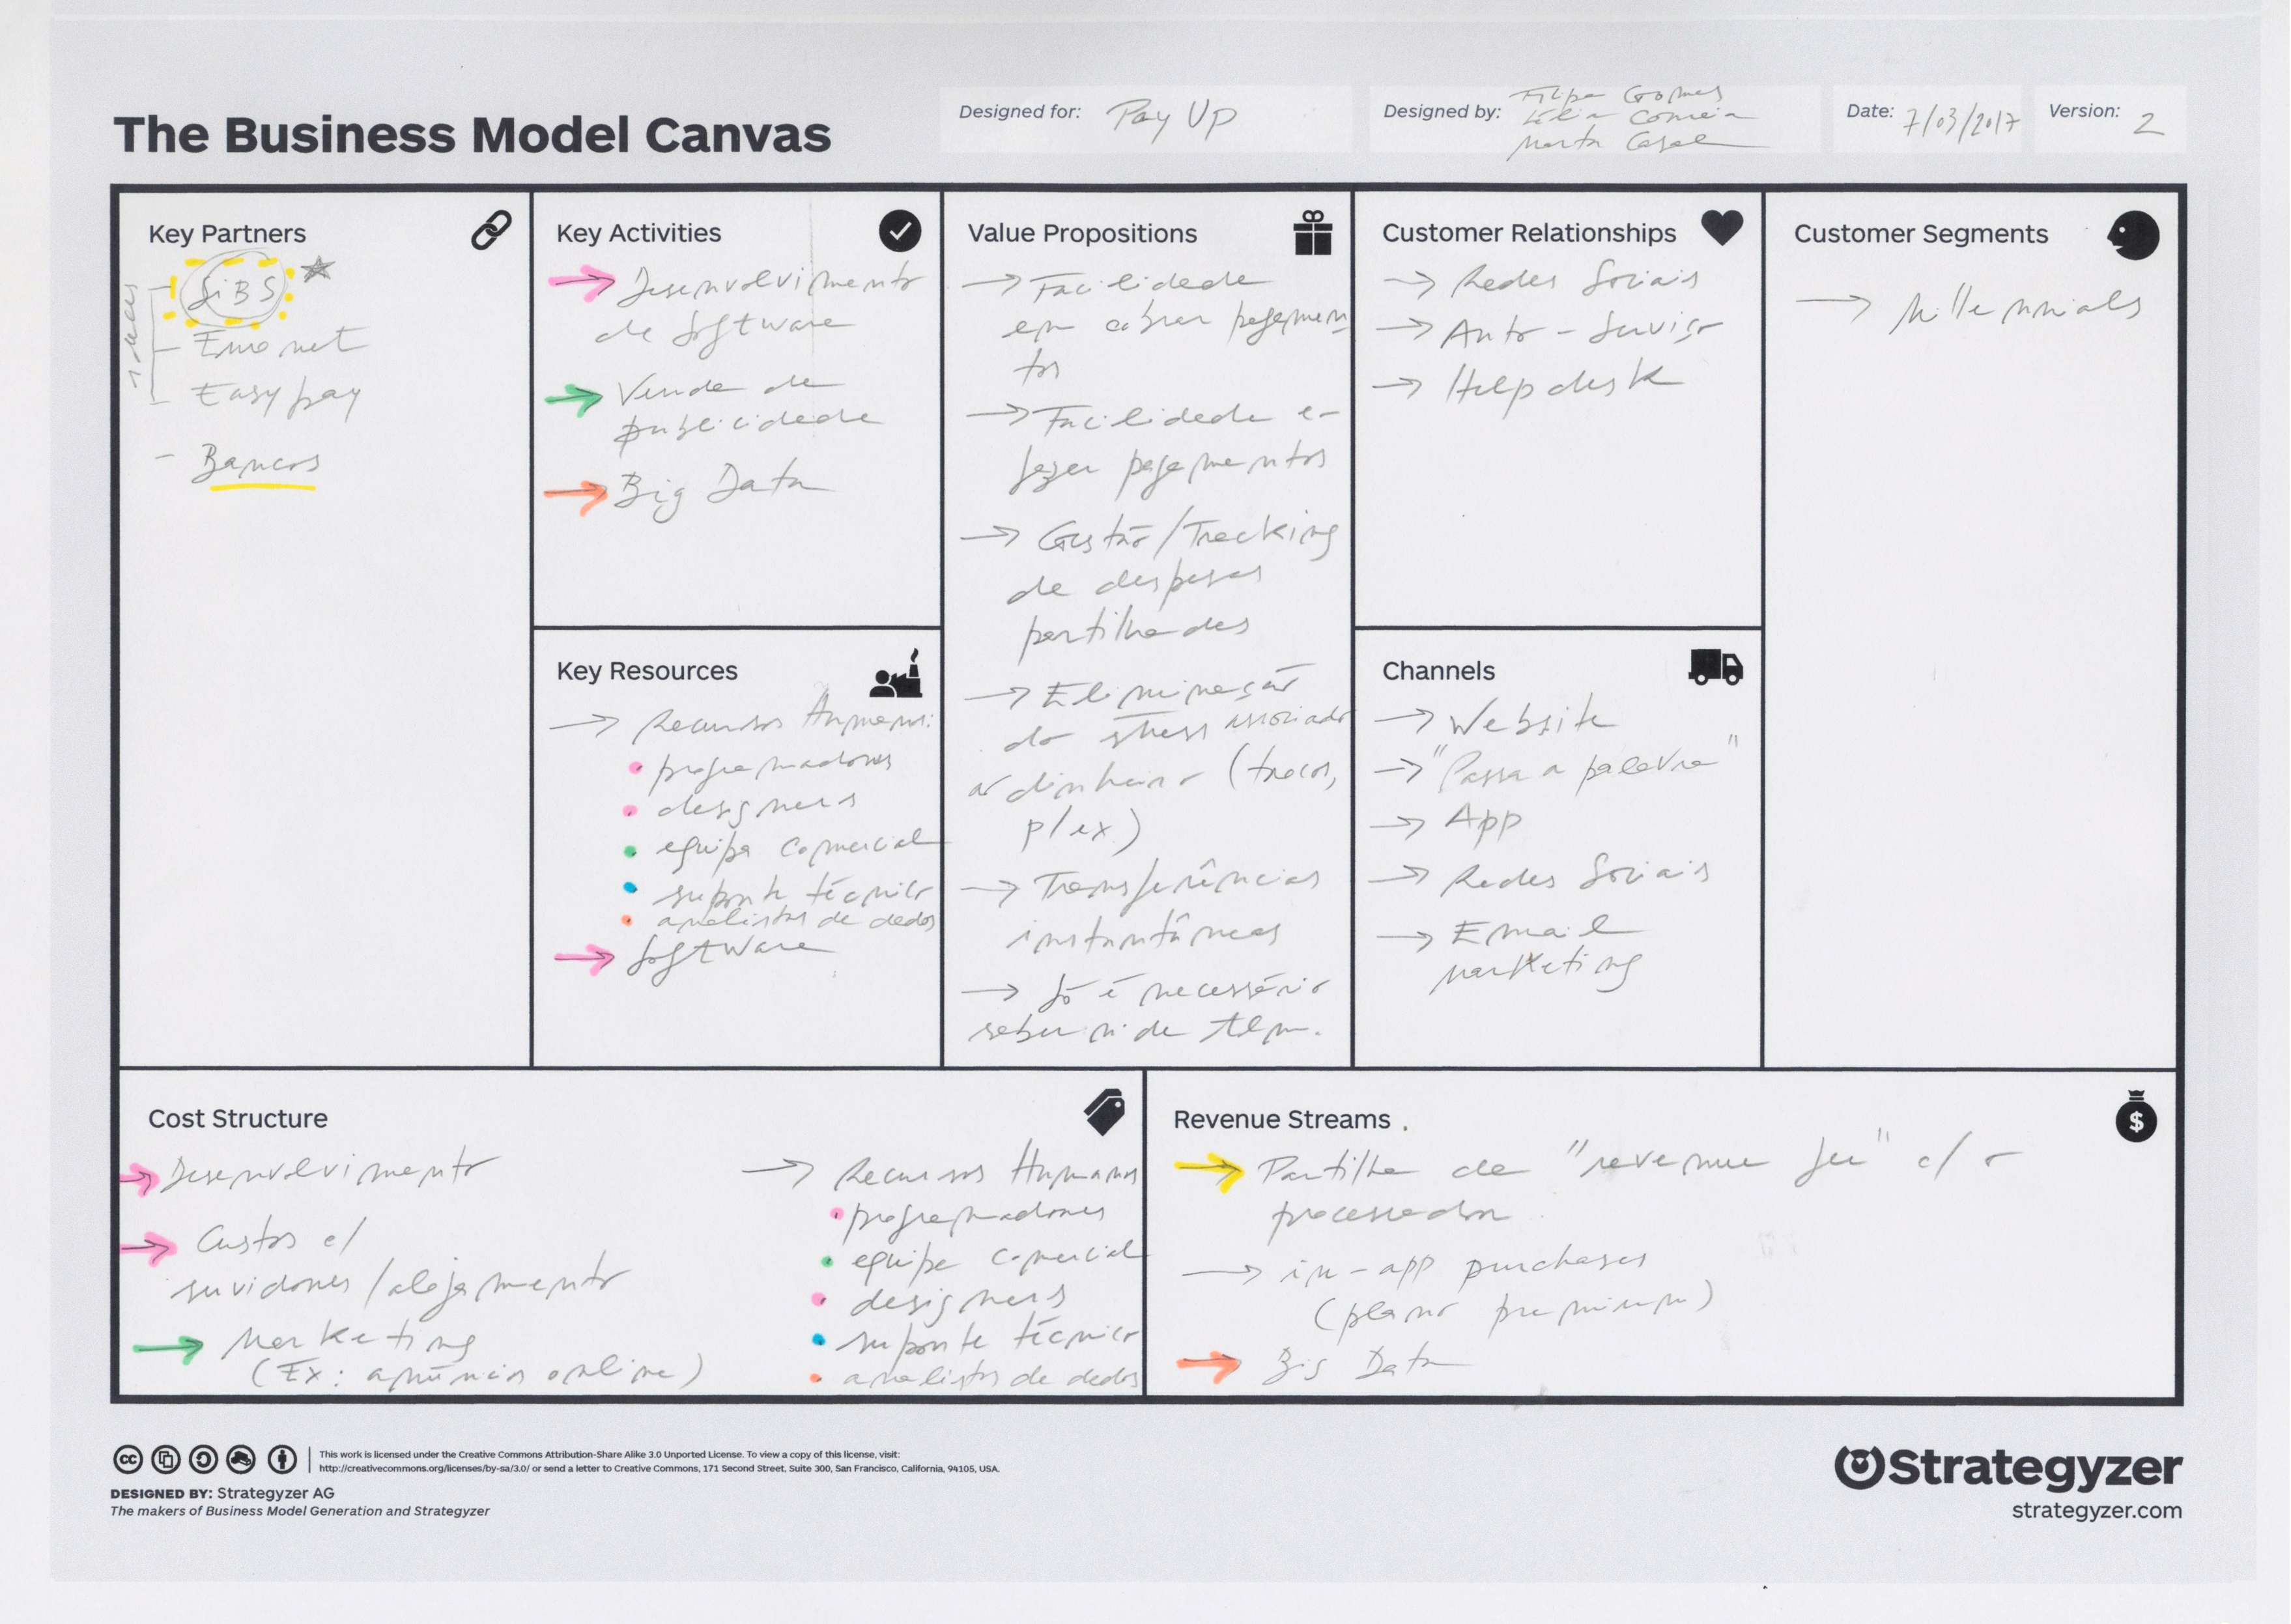 The Business Model Canvas
Designed for: Pay Up
Designed by: Filipe Gomes
Correia
Marta Casal
Date: 7/03/2017
Version: 2
Key Partners
SiBS
Euronet
Easypay
- Bancos
Key Activities
→ Desenvolvimento
de Software
→ Venda de
publicidade
→ Big Data
Key Resources
→ Recursos Humanos:
• programadores
• designers
• equipa comercial
• suporte técnico
• analistas de dados
→ Software
Value Propositions
→ Facilidade
em cobrar pagamen-
tos
→ Facilidade em
fazer pagamentos
→ Gestão/Tracking
de despesas
partilhadas
→ Eliminação
do stress associado
ao dinheiro (trocos,
p/ ex.)
→ Transferências
instantâneas
→ Só é necessário
saber n. de tlm.
Customer Relationships
→ Redes Sociais
→ Auto-Serviço
→ Helpdesk
Channels
→ Website
→ "Passa a palavra"
→ App
→ Redes Sociais
→ Email
marketing
Customer Segments
→ Millennials
Cost Structure
→ Desenvolvimento
→ Custos c/
servidores/alojamento
→ Marketing
(Ex: anúncios online)
→ Recursos Humanos
• programadores
• equipa comercial
• designers
• suporte técnico
• analistas de dados
Revenue Streams
→ Partilha de "revenue fee" c/ o
processador
→ in-app purchases
(plano premium)
→ Big Data
This work is licensed under the Creative Commons Attribution-Share Alike 3.0 Unported License. To view a copy of this license, visit:
http://creativecommons.org/licenses/by-sa/3.0/ or send a letter to Creative Commons, 171 Second Street, Suite 300, San Francisco, California, 94105, USA.
DESIGNED BY: Strategyzer AG
The makers of Business Model Generation and Strategyzer
Strategyzer
strategyzer.com